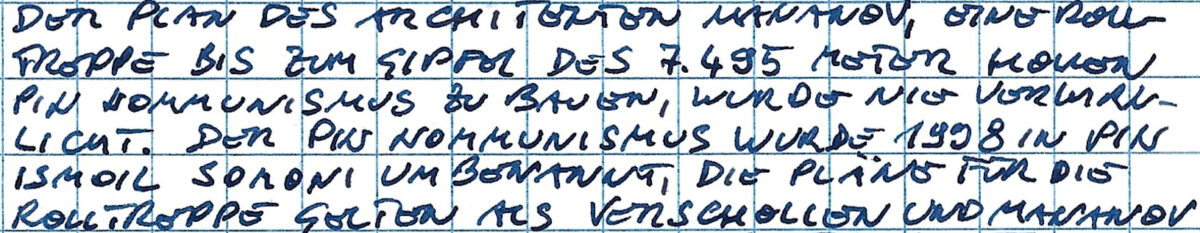 DER PLAN DES ARCHITEKTEN MAKANOV, EINE ROLL-
TREPPE BIS ZUM GIPFEL DES 7.495 METER HOHEN
PIK KOMMUNISMUS ZU BAUEN, WURDE NIE VERWIRK-
LICHT. DER PIK KOMMUNISMUS WURDE 1998 IN PIK
ISMOIL SOMONI UMBENANNT, DIE PLÄNE FÜR DIE
ROLLTREPPE GELTEN ALS VERSCHOLLEN UND MAKANOV